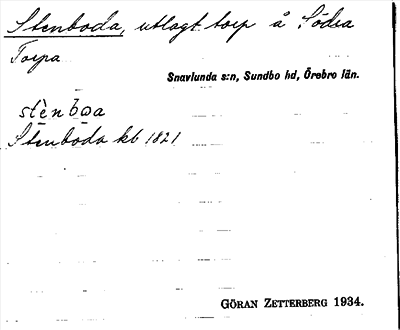 Stenboda, utlagt torp å Södra
Torpa
Snavlunda s:n, Sundbo hd, Örebro län.
stè̱nbω̱a
Stenboda kb 1821
GÖRAN ZETTERBERG 1934.